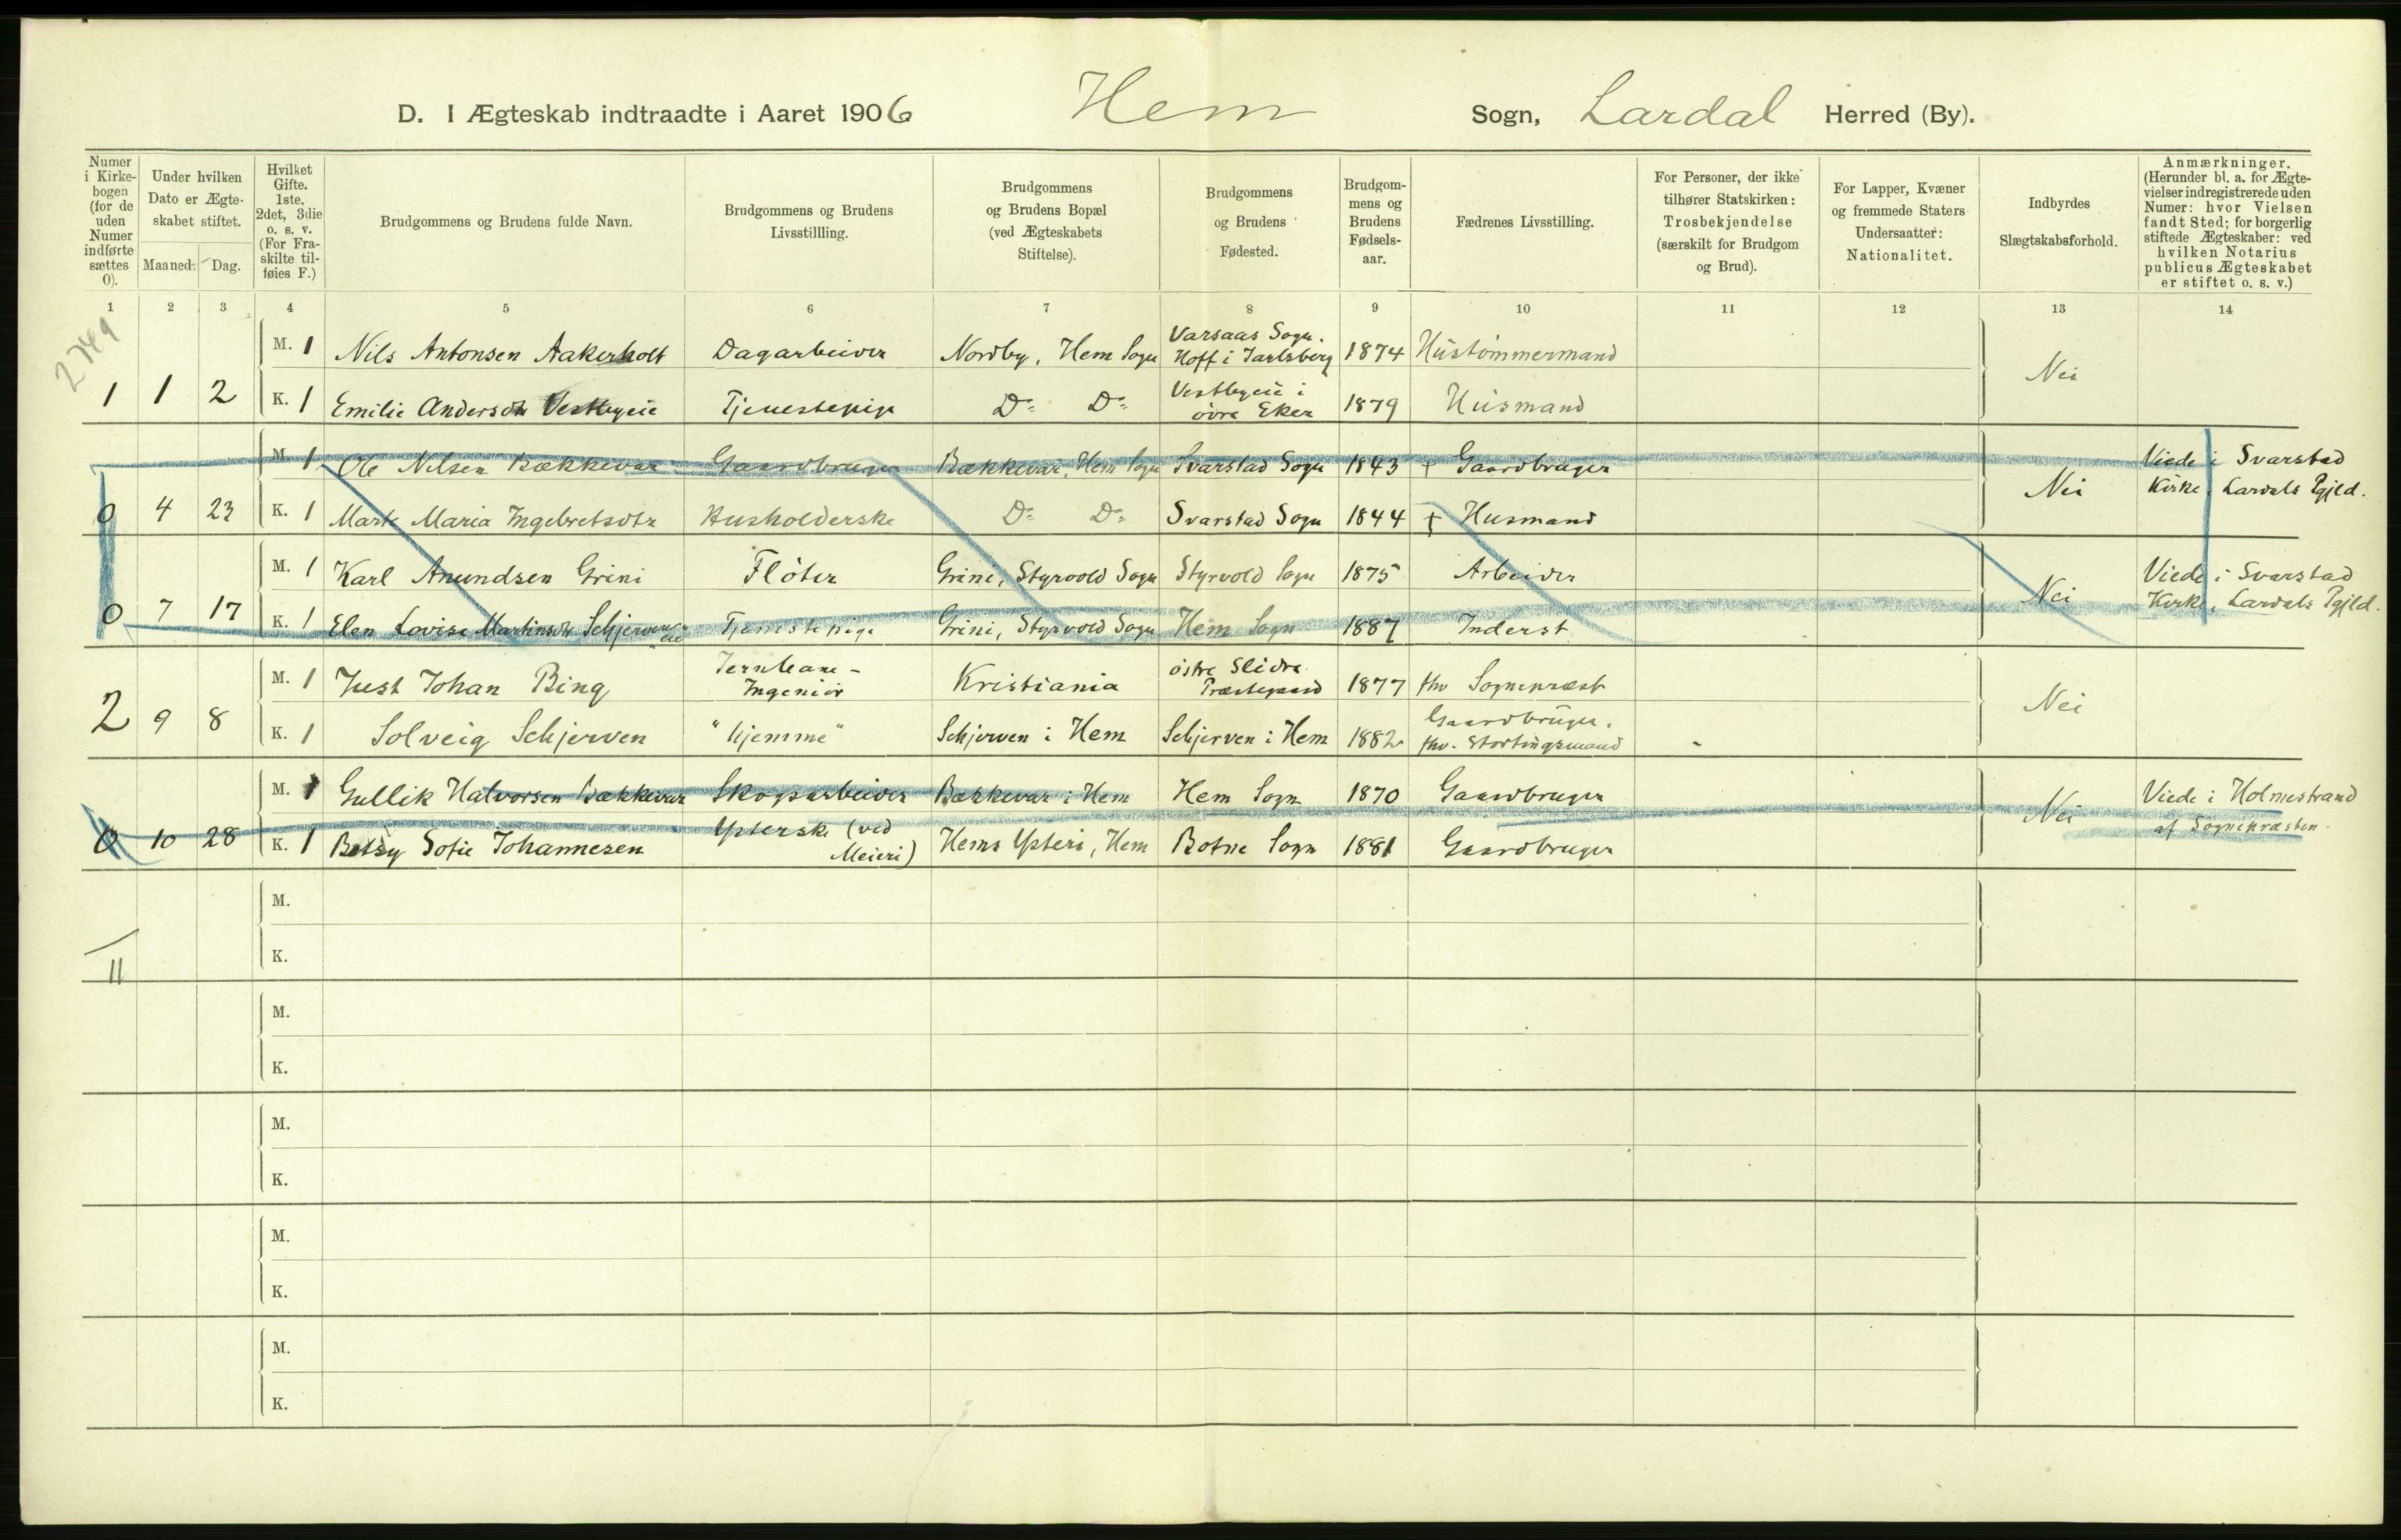 D. I Ægteskab indtraadte i Aaret 1906 Hem Sogn, Lardal Herred (By).
Numer i Kirkebogen (for de uden Numer indførte sættes 0).
Under hvilken Dato er Ægteskabet stiftet.
Maaned. Dag.
Hvilket Gifte. 1ste, 2det, 3die o. s. v. (For Fraskilte tilføies F.)
Brudgommens og Brudens fulde Navn.
Brudgommens og Brudens Livsstillling.
Brudgommens og Brudens Bopæl (ved Ægteskabets Stiftelse).
Brudgommens og Brudens Fødested.
Brudgommens og Brudens Fødselsaar.
Fædrenes Livsstilling.
For Personer, der ikke tilhører Statskirken: Trosbekjendelse (særskilt for Brudgom og Brud).
For Lapper, Kvæner og fremmede Staters Undersaatter: Nationalitet.
Indbyrdes Slægtskabsforhold.
Anmærkninger. (Herunder bl. a. for Ægtevielser indregistrerede uden Numer: hvor Vielsen fandt Sted; for borgerlig stiftede Ægteskaber: ved hvilken Notarius publicus Ægteskabet er stiftet o. s. v.)
1 2 3 4 5 6 7 8 9 10 11 12 13 14
2749
M. 1 Nils Antonsen Aakerholt Dagarbeider Nordby, Hem Sogn Varsaas Sogn. Hoff i Jarlsberg 1874 Hustømmermand
1 1 2 K. 1 Emilie Andersdtr Vestbyeie Tjenestepige Do Do Vestbyeie i øvre Eker 1879 Husmand Nei
M. 1 Ole Nilsen Bækkevar Gaardbruger Bækkevar, Hem Sogn Svarstad Sogn 1843 † Gaardbruger Viede i Svarstad
0 4 23 K. 1 Marte Maria Ingebretsdtr Husholderske Do Do Svarstad Sogn 1844 † Husmand Nei Kirke, Lardals Pgjld.
M. 1 Karl Amundsen Grini Fløter Grini, Styrvold Sogn Styrvold Sogn 1875 Arbeider Viede i Svarstad
0 7 17 K. 1 Elen Lovise Martinsdtr Schjerveneie Tjenestepige Grini, Styrvold Sogn Hem Sogn 1887 Inderst Nei Kirke, Lardals Pgjld.
M. 1 Just Johan Bing Jernbane-Ingeniør Kristiania østre Slidre Præstegaard 1877 fhv Sogneprest
2 9 8 K. 1 Solveig Schjerven "hjemme" Schjerven i Hem Schjerven i Hem 1882 Gaardbruger, fhv. Stortingsmand Nei
M. 1 Gullik Halvorsen Bækkevar Skogsarbeider Bækkevar i Hem Hem Sogn 1870 Gaardbruger Viede i Holmestrand
0 10 28 K. 1 Betsy Sofie Johannesen Ysterske (ved Meieri) Hems Ysteri, Hem Botne Sogn 1881 Gaardbruger Nei af Sognepræsten.
M.
K.
11
M.
K.
M.
K.
M.
K.
M.
K.